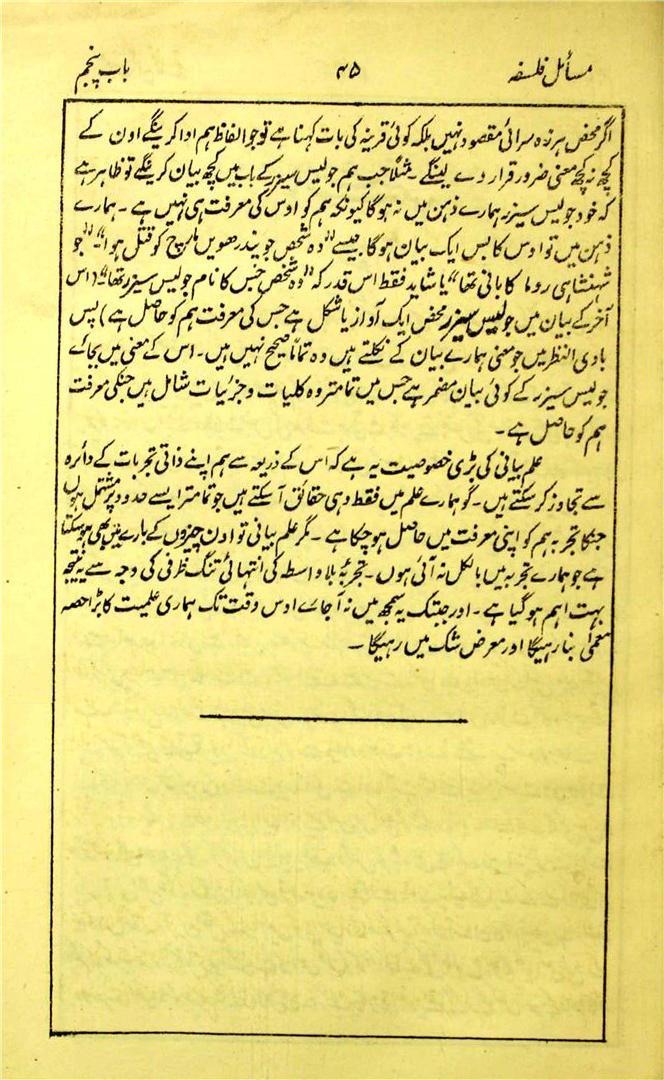 مسائل فلسفہ ۴۵ باب پنجم
اگر محض ہرزہ سرائی مقصود نہیں بلکہ کوئی قرینہ کی بات کہنا ہے تو جو الفاظ ہم ادا کرینگے اون کے
کچھ نہ کچھ معنی ضرور قرار دے لینگے۔ مثلاً جب ہم جولیس سیزر کے باب میں کچھ بیان کرینگے تو ظاہر ہے
کہ خود جولیس سیزر ہمارے ذہن میں نہ ہوگا کیونکہ ہم کو اوس کی معرفت ہی نہیں ہے۔ ہمارے
ذہن میں تو اوس کا بس ایک بیان ہوگا جیسے "وہ شخص جو پندرھویں مارچ کو قتل ہوا"۔ "جو
شہنشاہی روما کا بانی تھا" یا شاید فقط اس قدر کہ "وہ شخص جس کا نام جولیس سیزر تھا" (اس
آخر کے بیان میں جولیس سیزر محض ایک آواز یا شکل ہے جس کی معرفت ہم کو حاصل ہے) پس
بادی النظر میں جو معنی ہمارے بیان کے نکلتے ہیں وہ تماماً صحیح نہیں ہیں۔ اس کے معنی میں بجائے
جولیس سیزر کے کوئی بیان مضمر ہے جس میں تمامتر وہ کلیات و جزئیات شامل ہیں جنکی معرفت
ہم کو حاصل ہے۔
علم بیانی کی بڑی خصوصیت یہ ہے کہ اس کے ذریعہ سے ہم اپنے ذاتی تجربات کے دائرہ
سے تجاوز کر سکتے ہیں۔ گو ہمارے علم میں فقط وہی حقائق آ سکتے ہیں جو تمامتر ایسے حدود پر مشتمل ہوں
جنکا تجربہ ہم کو اپنی معرفت میں حاصل ہو چکا ہے۔ مگر علم بیانی تو اون چیزوں کے بارے میں بھی ہو سکتا
ہے جو ہمارے تجربہ میں بالکل نہ آئی ہوں۔ تجربۂ بلاواسطہ کی انتہائی تنگ ظرفی کی وجہ سے یہ نتیجہ
بہت اہم ہو گیا ہے۔ اور جبتک یہ سمجھ میں نہ آجائے اوس وقت تک ہماری علمیت کا بڑا حصہ
معمّٰی بنا رہیگا اور معرض شک میں رہیگا۔